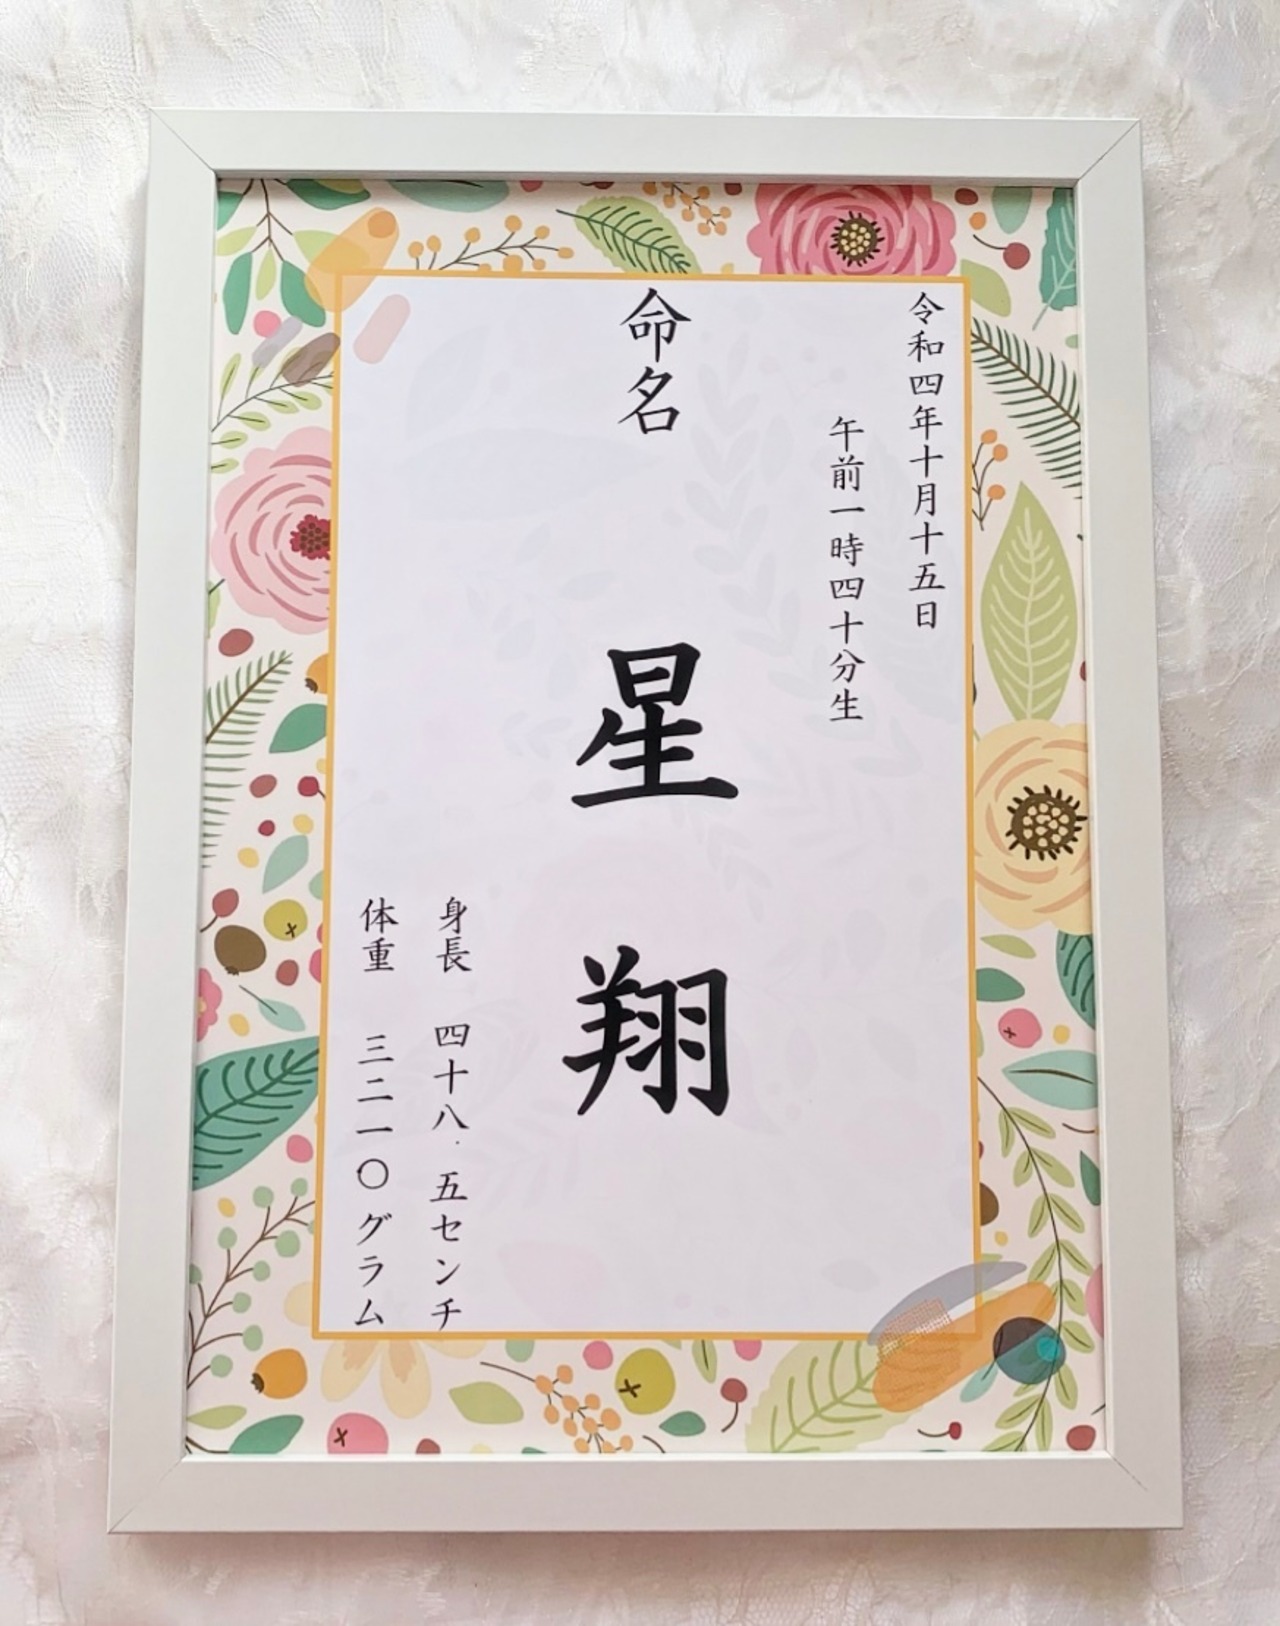 令和四年十月十五日
午前一時四十分生
命名
星翔
身長 四十八．五センチ
体重 三二一〇グラム